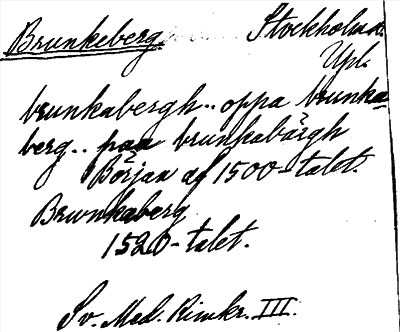 Brunkeberg. Stockholm.
Upl.
brunkabergh.. oppa brunka-
berg.. paa brunkabärgh
Början af 1500-talet.
Brwnkaberg
1520-talet.
Sv. Med. Rimkr. III.